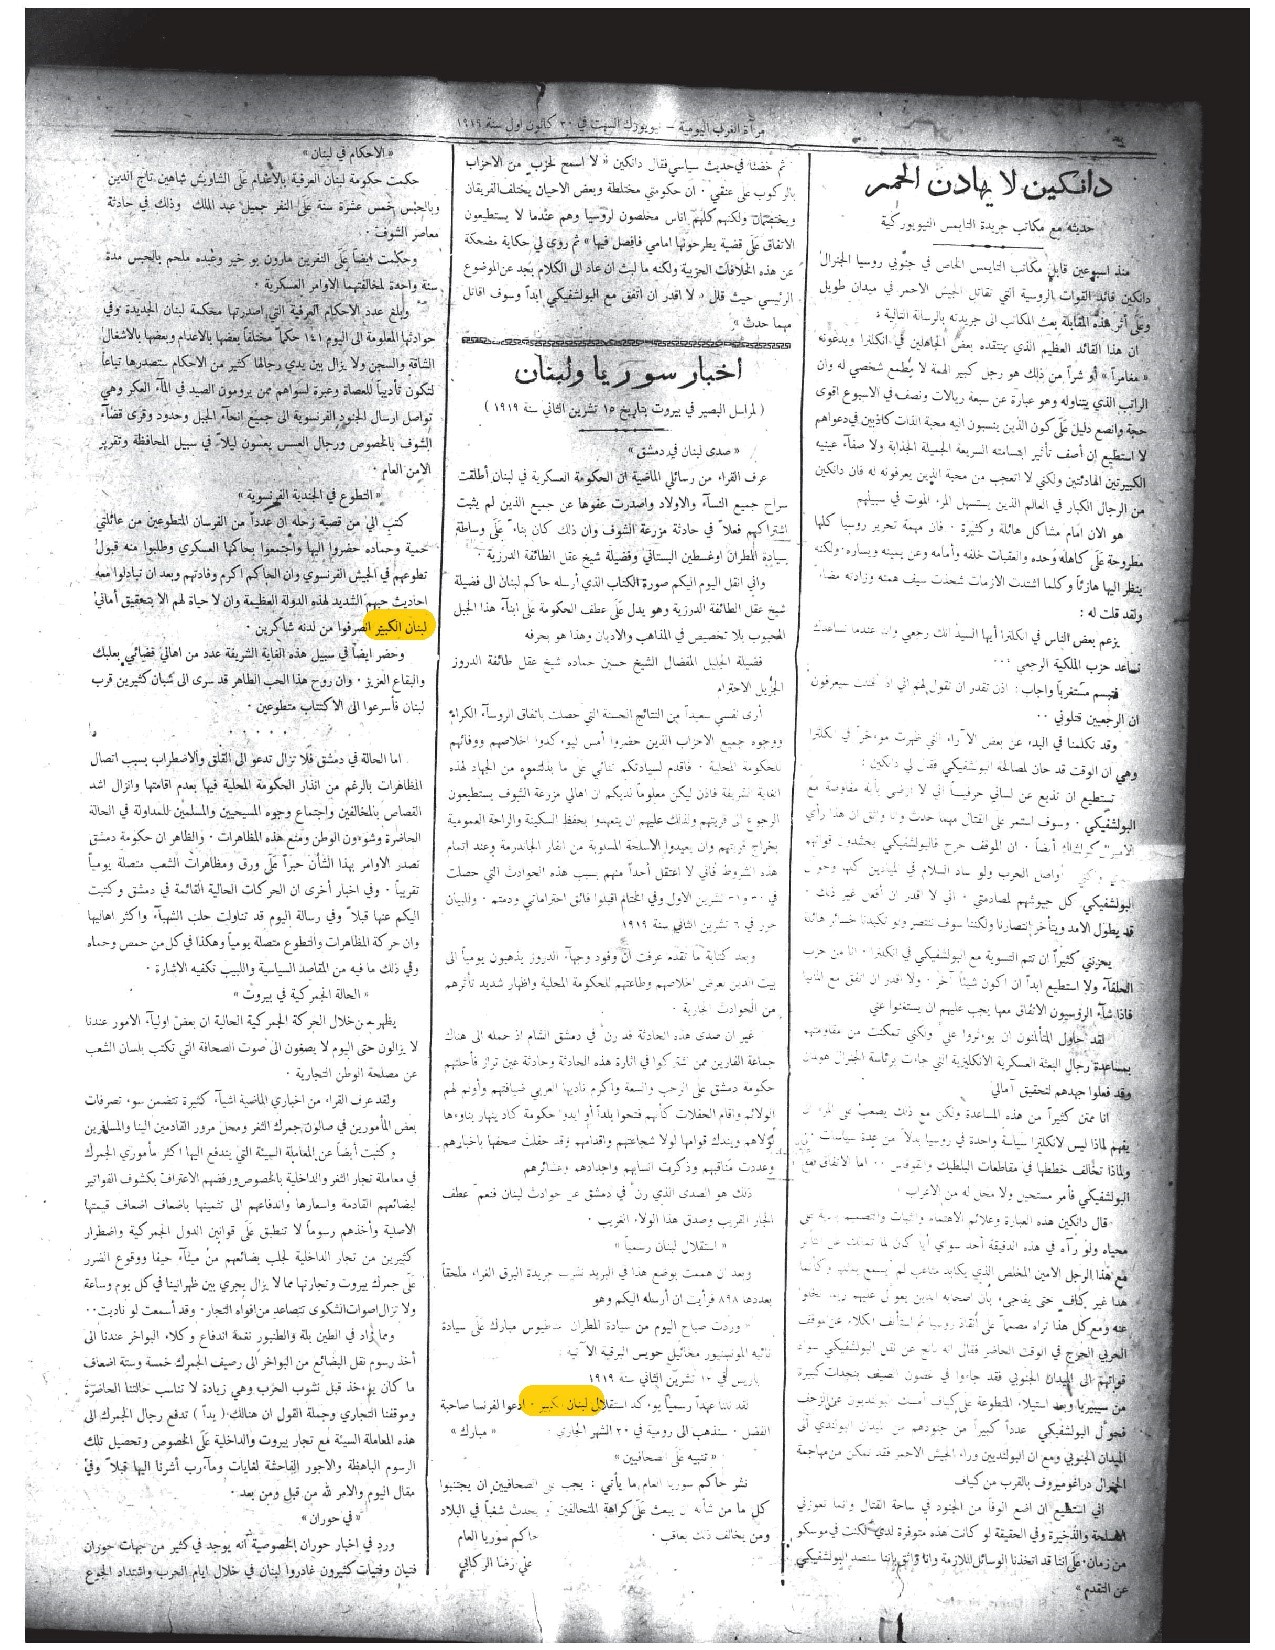 مرآة الغرب اليومية - نيويورك السبت في ٢٠ كانون اول سنة ١٩١٩
دانكين لا يهادن الحمر
حديثه مع مكاتب جريدة التايمس النيويوركية
منذ اسبوعين قابل مكاتب التايمس الخاص في جنوبي روسيا الجنرال
دانكين قائد القوات الروسية التي تقاتل الجيش الاحمر في ميدان طويل
وعلى أثر هذه المقابلة بعث المكاتب الى جريدته بالرسالة التالية :
ان هذا القائد العظيم الذي ينتقده بعض الجاهلين في انكلترا ويدعونه
« مغامراً » أو شراً من ذلك هو رجل كبير الهمة لا يطمع شخصي له وان
الراتب الذي يتناوله وهو عبارة عن سبعة ريالات ونصف في الاسبوع اقوى
حجة وانصع دليل على كون الذين ينسبون اليه محبة الذات كاذبين في دعواهم
لا استطيع ان أصف تأثير ابتسامته السريعة الجميلة الجذابة ولا صفآء عينيه
الكبيرتين الهادئتين ولكني لا اتعجب من محبة الذين يعرفونه له فان دانكين
من الرجال الكبار في العالم الذين يستسهل المرء الموت في سبيلهم
هو الان امام مشاكل هائلة وكثيرة ٠ فان مهمة تحرير روسيا كلها
مطروحة على كاهله وحده والعقبات خلفه وأمامه وعن يمينه ويساره٠ ولكنه
ينظر اليها هازئاً وكلما اشتدت الازمات شحذت سيف همته وزادته مضآء
ولقد قلت له :
يزعم بعض الناس في انكلترا أيها السيد انك رجعي واننا عندما نساعدك
نساعد حزب الملكية الرجعي ٠٠٠
فتبسم مستغرباً واجاب : اذن تقدر ان تقول لهم اني اذا فعلت سيعرفون
ان الرجعيين قتلوني ٠٠
وقد تكلمنا في البدء عن بعض الآراء التي ظهرت موءخراً في انكلترا
وهي ان الوقت قد حان لمصالحة البولشفيكي فقال لي دانكين :
تستطيع ان تذيع عن لساني حرفياً اني لا ارضى بأية مفاوضة مع
البولشفيكي ٠ وسوف استمر على القتال مهما حدث وانا واثق ان هذا رأي
الأميرال كولشاك أيضاً ٠ ان الموقف حرج فالبولشفيكي يحشدون قواتهم
اواصل الحرب ولو ساد السلام في الميادين كلها وحول
البولشفيكي كل جيوشهم لمصادمتي ٠ اني لا اقدر ان أفعل غير ذلك ٠
قد يطول الامد ويتأخر انتصارنا ولكننا سوف ننتصر ولو تكبدنا خسائر هائلة
يحزنني كثيراً ان تتم التسوية مع البولشفيكي في انكلترا ٠ انا من حزب
الحلفآء ولا استطيع ابداً ان اكون شيئاً آخر ٠ ولا اقدر ان اتفق مع المانيا
فاذا شآء الروسيون الاتفاق معها يجب عليهم ان يستغنوا عني
لقد حاول المتألمنون ان يوءثروا علي ولكني تمكنت من مقاومتهم
بمساعدة رجال البعثة العسكرية الانكليزية التي جاءت برئاسة الجنرال هولمن
وقد فعلوا جهدهم لتحقيق آمالي
انا ممتن كثيراً من هذه المساعدة ولكن مع ذلك يصعب على المرء ان
يفهم لماذا ليس لانكلترا سياسة واحدة في روسيا بدلاً من عدة سياسات ٠
ولماذا تخالف خططها في مقاطعات البلطيك والقوقاس ٠٠ اما الاتفاق مع
البولشفيكي فأمر مستحيل ولا محل له من الاعراب ٠
قال دانكين هذه العبارة وعلائم الاهتمام والثبات والتصميم بادية على
محياه ولو رآه في هذه الدقيقة أحد سواي أيا كان لما تمالك عن التأثر
مع هذا الرجل الامين المخلص الذي يكابد متاعب لم يسمع بمثلها وكأنما
هذا غير كاف حتى يفاجىء بأن اصحابه الذين يعول عليهم ربما تخلوا
عنه ومع كل هذا تراه مصمماً على انقاذ روسيا ثم استأنف الكلام عن موقف
الحربي الحرج في الوقت الحاضر فقال انه ناتج عن نقل البولشفيكي سواد
قواتهم الى الميدان الجنوبي فقد جاءوا في غضون الصيف بنجدات كبيرة
من سيبيريا وبعد استيلاء المتطوعة على كياف أمسك البولنديون عن الزحف
فحول البولشفيكي عدداً كبيراً من جنودهم من الميدان البولندي الى
الميدان الجنوبي ومع ان البولنديين وراء الجيش الاحمر فقد تمكن من مهاجمة
الجنرال دراغوميروف بالقرب من كياف
اني استطيع ان اضع الوفاً من الجنود في ساحة القتال وانما تعوزني
الاسلحة والذخيرة وفي الحقيقة لو كانت هذه متوفرة لدي لكنت في موسكو
من زمان٠ على اننا قد اتخذنا الوسائل اللازمة وانا واثق باننا سنصد البولشفيكي
عن التقدم »
ثم خضنا في حديث سياسي فقال دانكين « لا اسمح لحزب من الاحزاب
بالركوب على عنقي ٠ ان حكومتي مختلطة وبعض الاحيان يختلف الفريقان
ويختصمان ولكنهم كلهم اناس مخلصون لروسيا وهم عندما لا يستطيعون
الاتفاق على قضية يطرحونها امامي فافصل فيها » ثم روى لي حكاية مضحكة
عن هذه الخلافات الحزبية ولكنه ما لبث ان عاد الى الكلام بجد عن الموضوع
الرئيسي حيث قال « لا اقدر ان اتفق مع البولشفيكي ابداً وسوف اقاتل
مهما حدث »
اخبار سوريا ولبنان
( لمراسل البصير في بيروت بتاريخ ١٥ تشرين الثاني سنة ١٩١٩ )
« صدى لبنان في دمشق »
عرف القراء من رسائلي الماضية ان الحكومة العسكرية في لبنان أطلقت
سراح جميع النسآء والاولاد واصدرت عفوها عن جميع الذين لم يثبت
اشتراكهم فعلاً في حادثة مزرعة الشوف وان ذلك كان بناء على وساطة
سيادة المطران اوغسطين البستاني وفضيلة شيخ عقل الطائفة الدرزية ٠
واني انقل اليوم اليكم صورة الكتاب الذي أرسله حاكم لبنان الى فضيلة
شيخ عقل الطائفة الدرزية وهو يدل على عطف الحكومة على ابنآء هذا الجبل
المحبوب بلا تخصيص في المذاهب والاديان وهذا هو بحرفه
فضيلة الجليل المفضال الشيخ حسين حماده شيخ عقل طائفة الدروز
الجزيل الاحترام
أرى نفسي سعيداً من النتائج الحسنة التي حصلت باتفاق الروسآء الكرام
ووجوه جميع الاحزاب الذين حضروا أمس ليوءكدوا اخلاصهم ووفائهم
للحكومة المحلية ٠ فاقدم لسيادتكم ثنائي على ما بذلتموه من الجهاد لهذه
الغاية الشريفة فاذن ليكن معلوماً لديكم ان اهالي مزرعة الشوف يستطيعون
الرجوع الى قريتهم ولذلك عليهم ان يتعهدوا بحفظ السكينة والراحة العمومية
بخراج قريتهم وان يعيدوا الاسلحة المسلوبة من انفار الجاندرمة وعند اتمام
هذه الشروط فاني لا اعتقل أحداً منهم بسبب هذه الحوادث التي حصلت
في ٣٠ و٣١ تشرين الاول وفي الختام اقبلوا فائق احتراماتي ودمتم ٠ وللبيان
حرر في ٦ تشرين الثاني سنة ١٩١٩
وبعد كتابة ما تقدم عرفت ان وفود وجهآء الدروز يذهبون يومياً الى
بيت الدين لعرض اخلاصهم وطاعتهم للحكومة المحلية واظهار شديد تأثرهم
من الحوادث الجارية ٠
غير ان صدى هذه الحادثة قد رن في دمشق الشام اذ حمله الى هناك
جماعة الفارين ممن اشتركوا في اثارة هذه الحادثة وحادثة عين تراز فأحلتهم
حكومة دمشق على الرحب والسعة واكرم ناديها العربي ضيافتهم وأولم لهم
الولائم واقام الحفلات كأنهم فتحوا بلداً أو ايدوا حكومة كاد ينهار بناوءها
لولاهم ويندك قوامها لولا شجاعتهم واقدامهم وقد حفلت صحفها باخبارهم
وعددت مناقبهم وذكرت انسابهم واجدادهم وعشائرهم
ذلك هو الصدى الذي رن في دمشق عن حوادث لبنان فنعم عطف
الجار القريب وصدق هذا الولاء الغريب ٠
« استقلال لبنان رسمياً »
وبعد ان هممت بوضع هذا في البريد نشرت جريدة البرق الغراء ملحقاً
بعددها ٨٩٨ فرأيت ان أرسله اليكم وهو
« وردت صباح اليوم من سيادة المطران مبارك على سيادة
نائبه المونسنيور مخائيل حويس البرقية الآتية :
باريس في ١٢ تشرين الثاني سنة ١٩١٩
لقد نلنا عهداً رسمياً يوءكد استقلال لبنان الكبير ٠ ادعوا لفرنسا صاحبة
الفضل ٠ سنذهب الى رومية في ٢٠ الشهر الجاري ٠ « مبارك »
« تنبيه على الصحافيين »
نشر حاكم سوريا العام ما يأتي : يجب على الصحافيين ان يجتنبوا
كل ما من شأنه ان يبعث على كراهة المتحالفين او يحدث شغباً في البلاد
ومن يخالف ذلك يعاقب ٠ حاكم سوريا العام
علي رضا الركابي
« الاحكام في لبنان »
حكمت حكومة لبنان العرفية بالاعدام على الشاويش شاهين تاج الدين
وبالحبس خمس عشرة سنة على النفر جميل عبد الملك وذلك في حادثة
معاصر الشوف ٠
وحكمت ايضاً على النفرين مارون بو خير وعبده ملحم بالحبس مدة
سنة واحدة لمخالفتهما الاوامر العسكرية ٠
وبلغ عدد الاحكام العرفية التي اصدرتها محكمة لبنان الجديدة وفي
حوادثها المعلومة الى اليوم ١٤١ حكماً مختلفاً بعضها بالاعدام وبعضها بالاشغال
الشاقة والسجن ولا يزال بين يدي رجالها كثير من الاحكام ستصدرها تباعاً
لتكون تأديباً للعصاة وعبرة لسواهم ممن يرومون الصيد في المآء العكر وهي
تواصل ارسال الجنود الفرنسوية الى جميع انحآء الجبل وحدود وقرى قضآء
الشوف بالخصوص ورجال العسس يعسون ليلاً في سبيل المحافظة وتقرير
الامن العام ٠
« التطوع في الجندية الفرنسوية »
كتب الي من قصبة زحله ان عدداً من الفرسان المتطوعين من عائلتي
حمية وحماده حضروا اليها واجتمعوا بحاكمها العسكري وطلبوا منه قبول
تطوعهم في الجيش الفرنسوي وان الحاكم اكرم وفادتهم وبعد ان تبادلوا معه
احاديث حبهم الشديد لهذه الدولة العظيمة وان لا حياة لهم الا بتحقيق أماني
لبنان الكبير انصرفوا من لدنه شاكرين ٠
وحضر ايضاً في سبيل هذه الغاية الشريفة عدد من اهالي قضائي بعلبك
والبقاع العزيز ٠ وان روح هذا الحب الطاهر قد سرى الى شبان كثيرين قرب
لبنان فأسرعوا الى الاكتتاب متطوعين ٠
٠ ٠ ٠ ٠ ٠
اما الحالة في دمشق فلا تزال تدعو الى القلق والاضطراب بسبب اتصال
المظاهرات بالرغم من انذار الحكومة المحلية فيها بعدم اقامتها وانزال اشد
القصاص بالمخالفين واجتماع وجوه المسيحيين والمسلمين للمداولة في الحالة
الحاضرة وشوءون الوطن ومنع هذه المظاهرات ٠ والظاهر ان حكومة دمشق
تصدر الاوامر بهذا الشأن حبراً على ورق ومظاهرات الشعب متصلة يومياً
تقريباً ٠ وفي اخبار أخرى ان الحركات الحالية القائمة في دمشق وكتبت
اليكم عنها قبلاً وفي رسالة اليوم قد تناولت حلب الشهبآء واكثر اهاليها
وان حركة المظاهرات والتطوع متصلة يومياً وهكذا في كل من حمص وحماه
وفي ذلك ما فيه من المقاصد السياسية واللبيب تكفيه الاشارة ٠
« الحالة الجمركية في بيروت »
يظهر من خلال الحركة الجمركية الحالية ان بعض اوليآء الامور عندنا
لا يزالون حتى اليوم لا يصغون الى صوت الصحافة التي تكتب بلسان الشعب
عن مصلحة الوطن التجارية ٠
ولقد عرف القراء من اخباري الماضية اشيآء كثيرة تتضمن سوء تصرفات
بعض المأمورين في صالون جمرك الثغر ومحل مرور القادمين الينا والمسافرين
وكتبت أيضاً عن المعاملة السيئة التي يندفع اليها اكثر مأموري الجمرك
في معاملة تجار الثغر والداخلية بالخصوص ورفضهم الاعتراف بكشوف الفواتير
لبضائعهم القادمة واسعارها واندفاعهم الى تثمينها باضعاف اضعاف قيمتها
الاصلية وأخذهم رسوماً لا تنطبق على قوانين الدول الجمركية واضطرار
كثيرين من تجار الداخلية لجلب بضائعهم من مينآء حيفا ووقوع الضرر
على جمرك بيروت وتجارتها مما لا يزال يجري بين ظهرانينا في كل يوم وساعة
ولا تزال اصوات الشكوى تتصاعد من افواه التجار٠ وقد أسمعت لو ناديت٠٠
ومما زاد في الطين بلة والطنبور نغمة اندفاع وكلاء البواخر عندنا الى
أخذ رسوم نقل البضائع من البواخر الى رصيف الجمرك خمسة وستة اضعاف
ما كان يوءخذ قبل نشوب الحرب وهي زيادة لا تناسب حالتنا الحاضرة
وموقفنا التجاري وجملة القول ان هنالك ( يداً ) تدفع رجال الجمرك الى
هذه المعاملة السيئة مع تجار بيروت والداخلية على الخصوص وتحصيل تلك
الرسوم الباهظة والاجور الفاحشة لغايات ومآرب أشرنا اليها قبلاً وفي
مقال اليوم والامر لله من قبل ومن بعد ٠
« في حوران »
ورد في اخبار حوران الخصوصية أنه يوجد في كثير من جهات حوران
فتيان وفتيات كثيرون غادروا لبنان في خلال ايام الحرب واشتداد الجوع